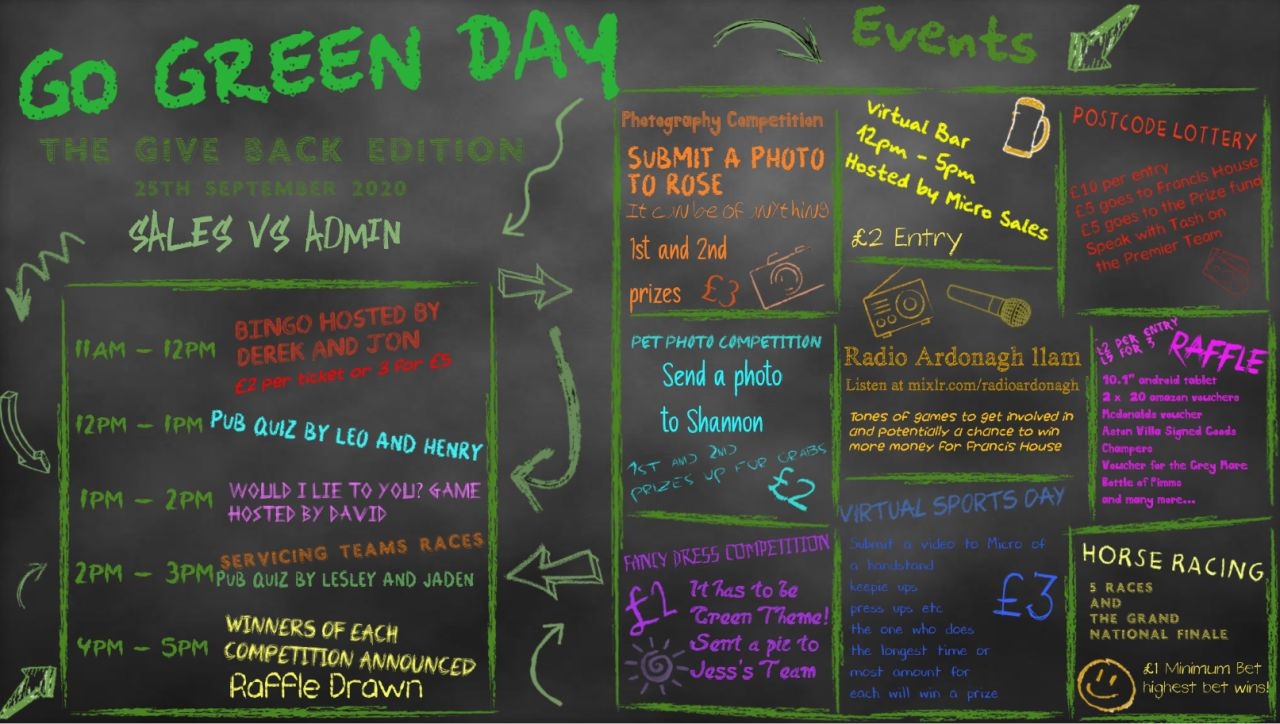 GO GREEN DAY
THE GIVE BACK EDITION
25TH SEPTEMBER 2020
SALES VS ADMIN
11AM - 12PM
BINGO HOSTED BY
DEREK AND JON
£2 per ticket or 3 for £5
12PM - 1PM
PUB QUIZ BY LEO AND HENRY
1PM - 2PM
WOULD I LIE TO YOU? GAME
HOSTED BY DAVID
2PM - 3PM
SERVICING TEAMS RACES
PUB QUIZ BY LESLEY AND JADEN
4PM - 5PM
WINNERS OF EACH
COMPETITION ANNOUNCED
Raffle Drawn
Events
Photography Competition
SUBMIT A PHOTO
TO ROSE
It can be of anything
1st and 2nd
prizes £3
Virtual Bar
12pm - 5pm
Hosted by Micro Sales
£2 Entry
POSTCODE LOTTERY
£10 per entry
£5 goes to Francis House
£5 goes to the Prize fund
Speak with Tash on
the Premier Team
PET PHOTO COMPETITION
Send a photo
to Shannon
1ST AND 2ND
PRIZES UP FOR GRABS
£2
Radio Ardonagh 11am
Listen at mixlr.com/radioardonagh
Tones of games to get involved in
and potentially a chance to win
more money for Francis House
£2 PER ENTRY
£5 FOR 3
RAFFLE
10.1" android tablet
2 x 20 amazon vouchers
Mcdonalds voucher
Aston Villa Signed Goods
Champers
Voucher for the Grey Mare
Bottle of Pimms
and many more...
FANCY DRESS COMPETITION
£2
It has to be
Green Theme!
Sent a pic to
Jess's Team
VIRTUAL SPORTS DAY
Submit a video to Micro of
a handstand
keepie ups
press ups etc
the one who does
the longest time or
most amount for
each will win a prize
£3
HORSE RACING
5 RACES
AND
THE GRAND
NATIONAL FINALE
£1 Minimum Bet
highest bet wins!